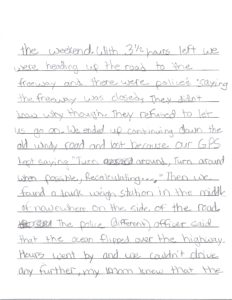 the weekend. With 3 1/2 hours left we
were heading up the road to the
freeway and there were polices saying
the freeway was closed. They didn't
know why though. They refused to let
us go on. We ended up continuing down the
old windy road and lost because our GPS
kept saying "Turn around, Turn around
when possible, Recalculating...." Then we
found a truck weigh station in the middle
of nowhere on the side of the road.
The police (different) officer said
that the ocean flipped over the highway.
Hours went by and we couldn't drive
any further, my mom knew that the